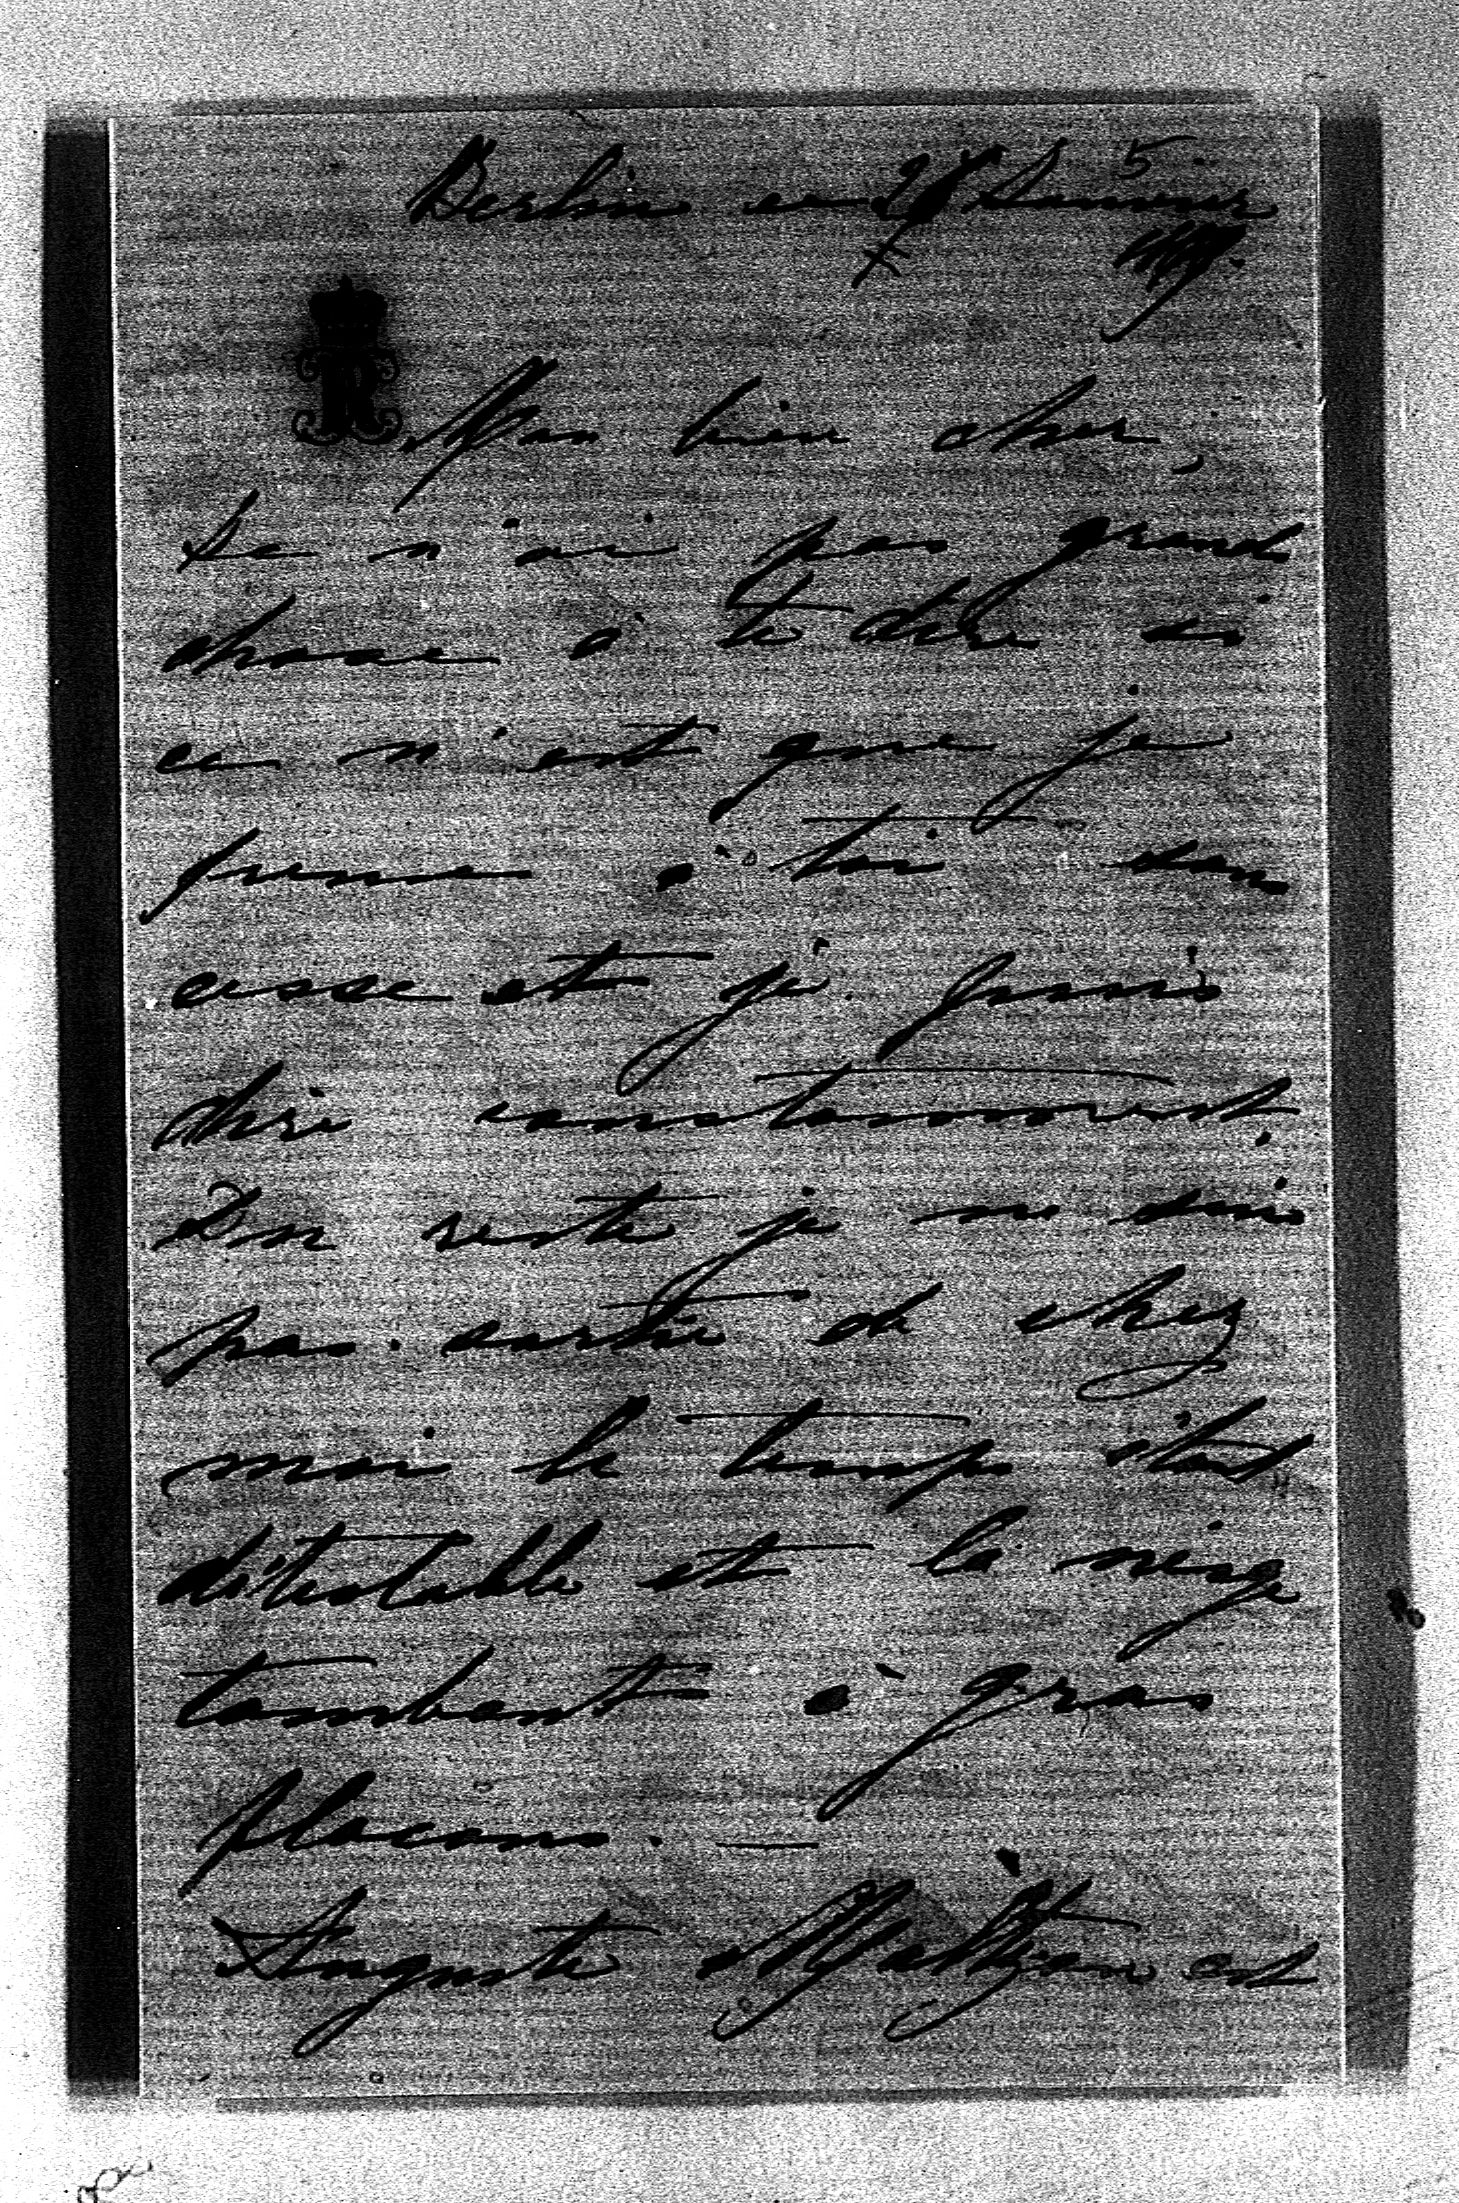 5
Berlin ce 28 Janvier
Mon bien cher,
Je n'ai pas grand
chose à te dire si
ce n'est que je
pense à toi sans
cesse et je puis
dire constamment.
Du reste je ne suis
pas sortie de chez
moi le temps étant
détestable et la neige
tombant à gros
flocons. —
Auguste est